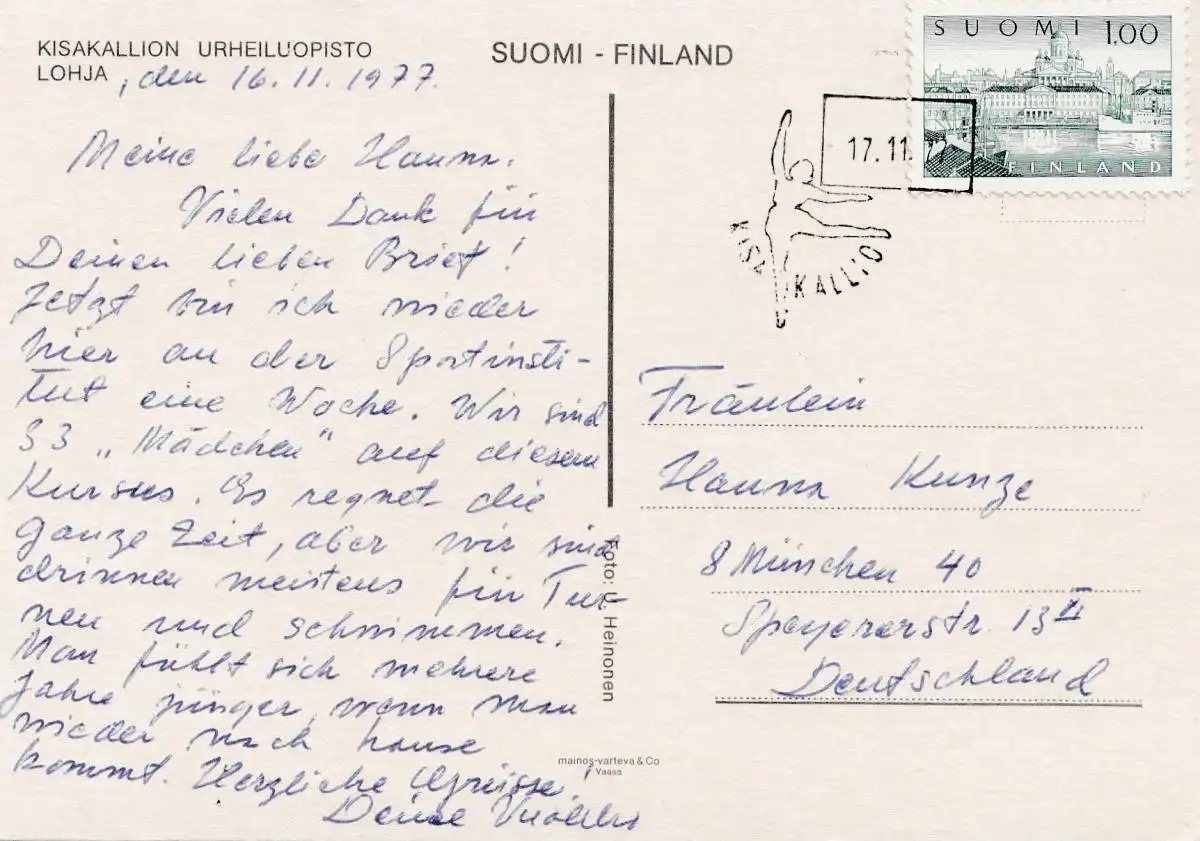 KISAKALLION URHEILUOPISTO
LOHJA, den 16.11.1977.
Meine liebe Hanna.
Vielen Dank für
Deinen lieben Brief!
Jetzt bin ich wieder
hier an der Sportinsti-
tut eine Woche. Wir sind
33 „Mädchen" auf diesem
Kursus. Es regnet die
ganze Zeit, aber wir sind
drinnen meistens für Tur-
nen und schwimmen.
Man fühlt sich mehrere
Jahre jünger, wenn man
wieder nach hause
kommt. Herzliche Grüsse!
Deine
SUOMI - FINLAND
Foto: U. Heinonen
mainos-varteva & Co
Vaasa
SUOMI 1.00
FINLAND
17.11.
KISAKALLIO
Fräulein
Hanna Kunze
8 München 40
Speyererstr. 13 II
Deutschland